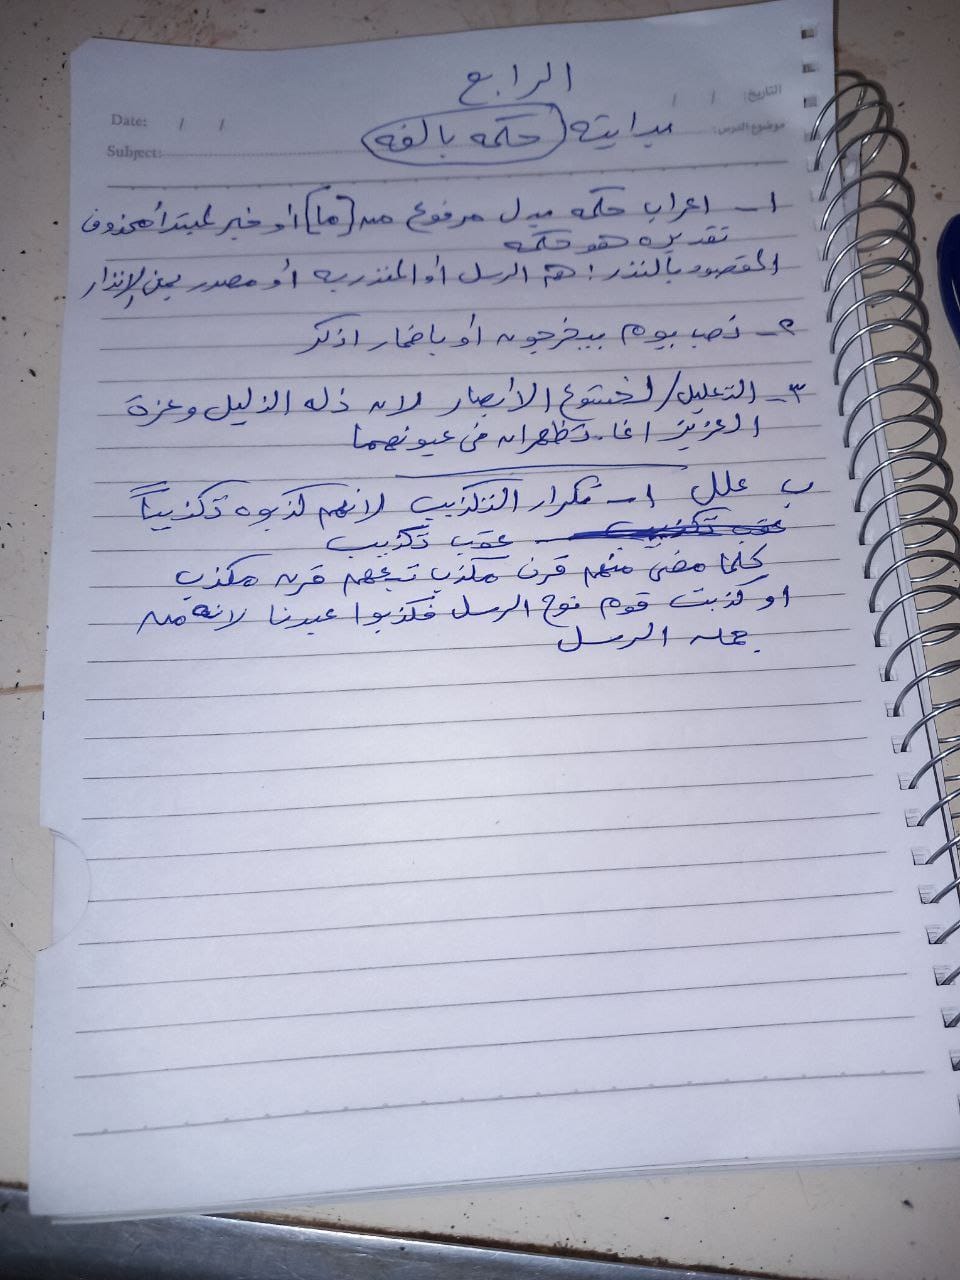 الرابع
التاريخ: / /
Date: / /
بدايته (حكمه بالغه)
موضوع الدرس:
Subject:
١- اعراب حكمه بدل مرفوع من [ما] أو خبر لمبتدأ محذوف
تقديره هو حكمه
المقصود بالنذر: هم الرسل أو المنذر به أو مصدر بمعنى الإنذار
٢- نصب يوم بيخرجون أو باضمار اذكر
٣- التعليل/ لخشوع الأبصار لان ذله الذليل وعزة
العزيز انما تظهران في عيونهما
ب علل ١- تكرار التكذيب لانهم كذبوه تكذيباً
عقب تكذيب
كلما مضى منهم قرن مكذب تبعهم قرن مكذب
او كذبت قوم نوح الرسل فكذبوا عبدنا لانه من
جمله الرسل